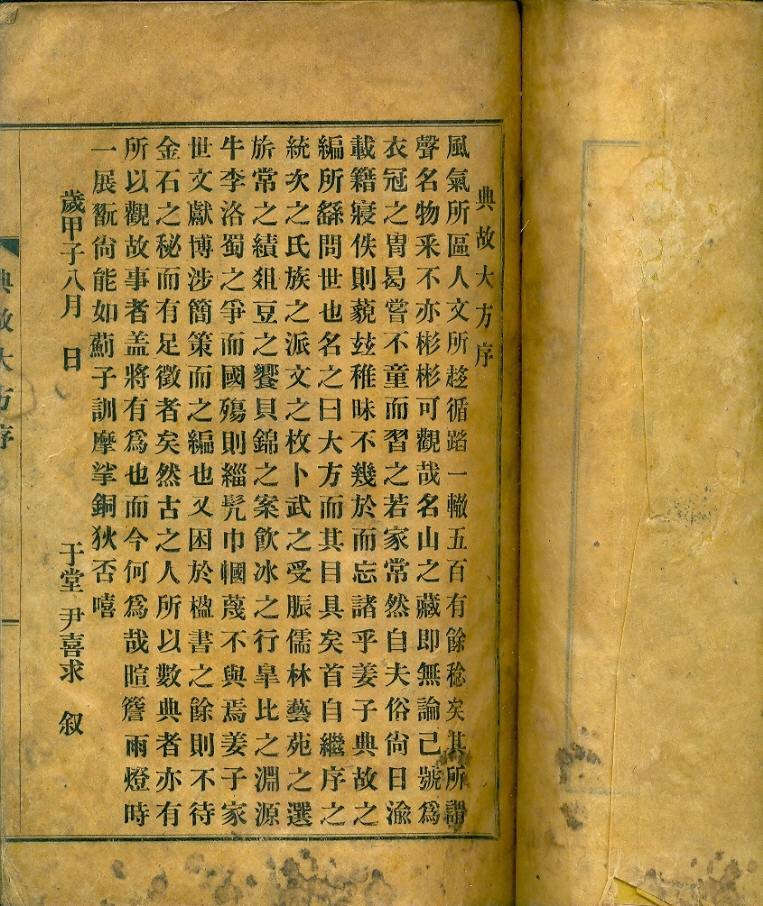 典故大方序
風氣所區人文所趍循蹈一轍五百有餘稔矣其所謂
聲名物釆不亦彬彬可觀哉名山之藏即無論已號爲
衣冠之胄曷嘗不童而習之若家常然自夫俗尙日渝
載籍寢佚則藐玆稚昧不幾於而忘諸乎姜子典故之
編所繇問世也名之曰大方而其目具矣首自繼序之
統次之氏族之派文之枚卜武之受脤儒林藝苑之選
旂常之績俎豆之饗貝錦之案飮冰之行皐比之淵源
牛李洛蜀之爭而國殤則緇髡巾幗蔑不與焉姜子家
世文獻博涉簡策而之編也又困於楹書之餘則不待
金石之秘而有足徵者矣然古之人所以數典者亦有
所以觀故事者盖將有爲也而今何爲哉暄簷雨燈時
一展翫尙能如薊子訓摩挲銅狄否嘻
歲甲子八月 日 于堂 尹喜求 叙
典故大方序